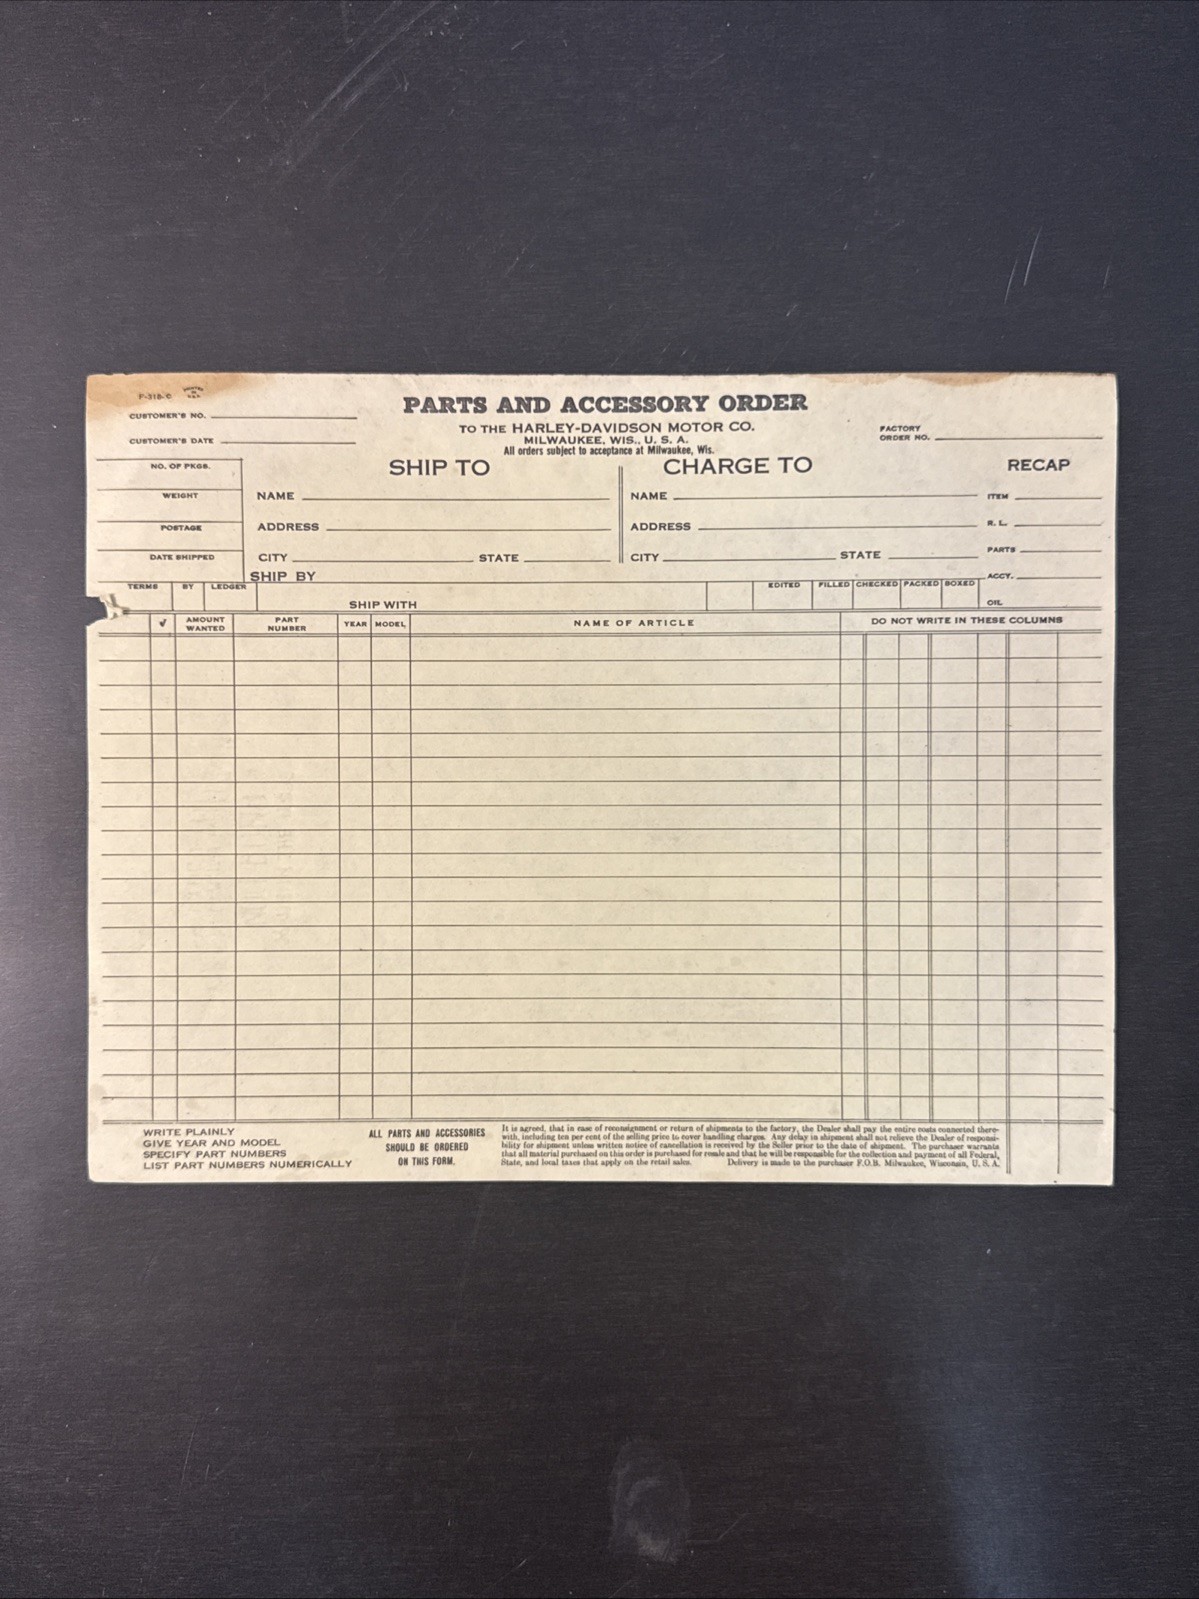 F-318-C PRINTED IN U.S.A.
CUSTOMER'S NO.
CUSTOMER'S DATE
PARTS AND ACCESSORY ORDER
TO THE HARLEY-DAVIDSON MOTOR CO.
MILWAUKEE, WIS., U. S. A.
All orders subject to acceptance at Milwaukee, Wis.
FACTORY
ORDER NO.
NO. OF PKGS.
WEIGHT
POSTAGE
DATE SHIPPED
SHIP TO
NAME
ADDRESS
CITY STATE
CHARGE TO
NAME
ADDRESS
CITY STATE
RECAP
ITEM
R. L.
PARTS
ACCY.
OIL
SHIP BY
TERMS BY LEDGER
SHIP WITH
EDITED FILLED CHECKED PACKED BOXED
√ AMOUNT WANTED PART NUMBER YEAR MODEL NAME OF ARTICLE DO NOT WRITE IN THESE COLUMNS
WRITE PLAINLY
GIVE YEAR AND MODEL
SPECIFY PART NUMBERS
LIST PART NUMBERS NUMERICALLY
ALL PARTS AND ACCESSORIES
SHOULD BE ORDERED
ON THIS FORM.
It is agreed, that in case of reconsignment or return of shipments to the factory, the Dealer shall pay the entire costs connected there-
with, including ten per cent of the selling price to cover handling charges. Any delay in shipment shall not relieve the Dealer of responsi-
bility for shipment unless written notice of cancellation is received by the Seller prior to the date of shipment. The purchaser warrants
that all material purchased on this order is purchased for resale and that he will be responsible for the collection and payment of all Federal,
State, and local taxes that apply on the retail sales. Delivery is made to the purchaser F.O.B. Milwaukee, Wisconsin, U. S. A.